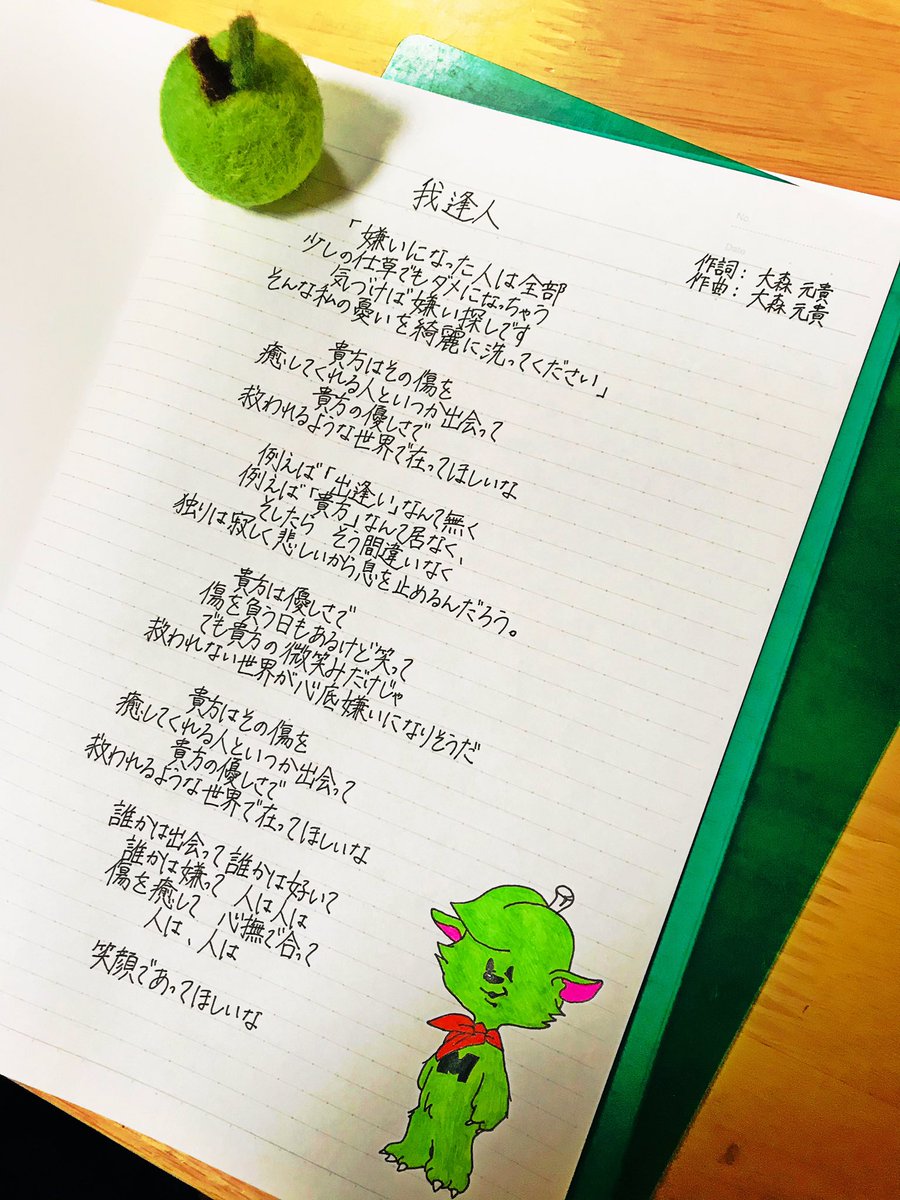 No.
Date
我逢人
作詞: 大森元貴
作曲: 大森元貴
「嫌いになった人は全部
少しの仕草でもダメになっちゃう
気づけば嫌い探しです
そんな私の憂いを綺麗に洗ってください」
貴方はその傷を
癒してくれる人といつか出会って
貴方の優しさで
救われるような世界で在ってほしいな
例えば「出逢い」なんて無く
例えば「貴方」なんて居なく、
そしたら そう間違いなく
独りは寂しく悲しいから息を止めるんだろう。
貴方は優しさで
傷を負う日もあるけど笑って
でも貴方の微笑みだけじゃ
救われない世界が心底嫌いになりそうだ
貴方はその傷を
癒してくれる人といつか出会って
貴方の優しさで
救われるような世界で在ってほしいな
誰かは出会って 誰かは好いて
誰かは嫌って 人は人は
傷を癒して 心撫で合って
人は、人は
笑顔であってほしいな
M